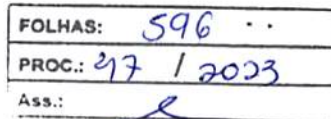 FOLHAS: 596
PROC.: 47 / 2023
Ass.: